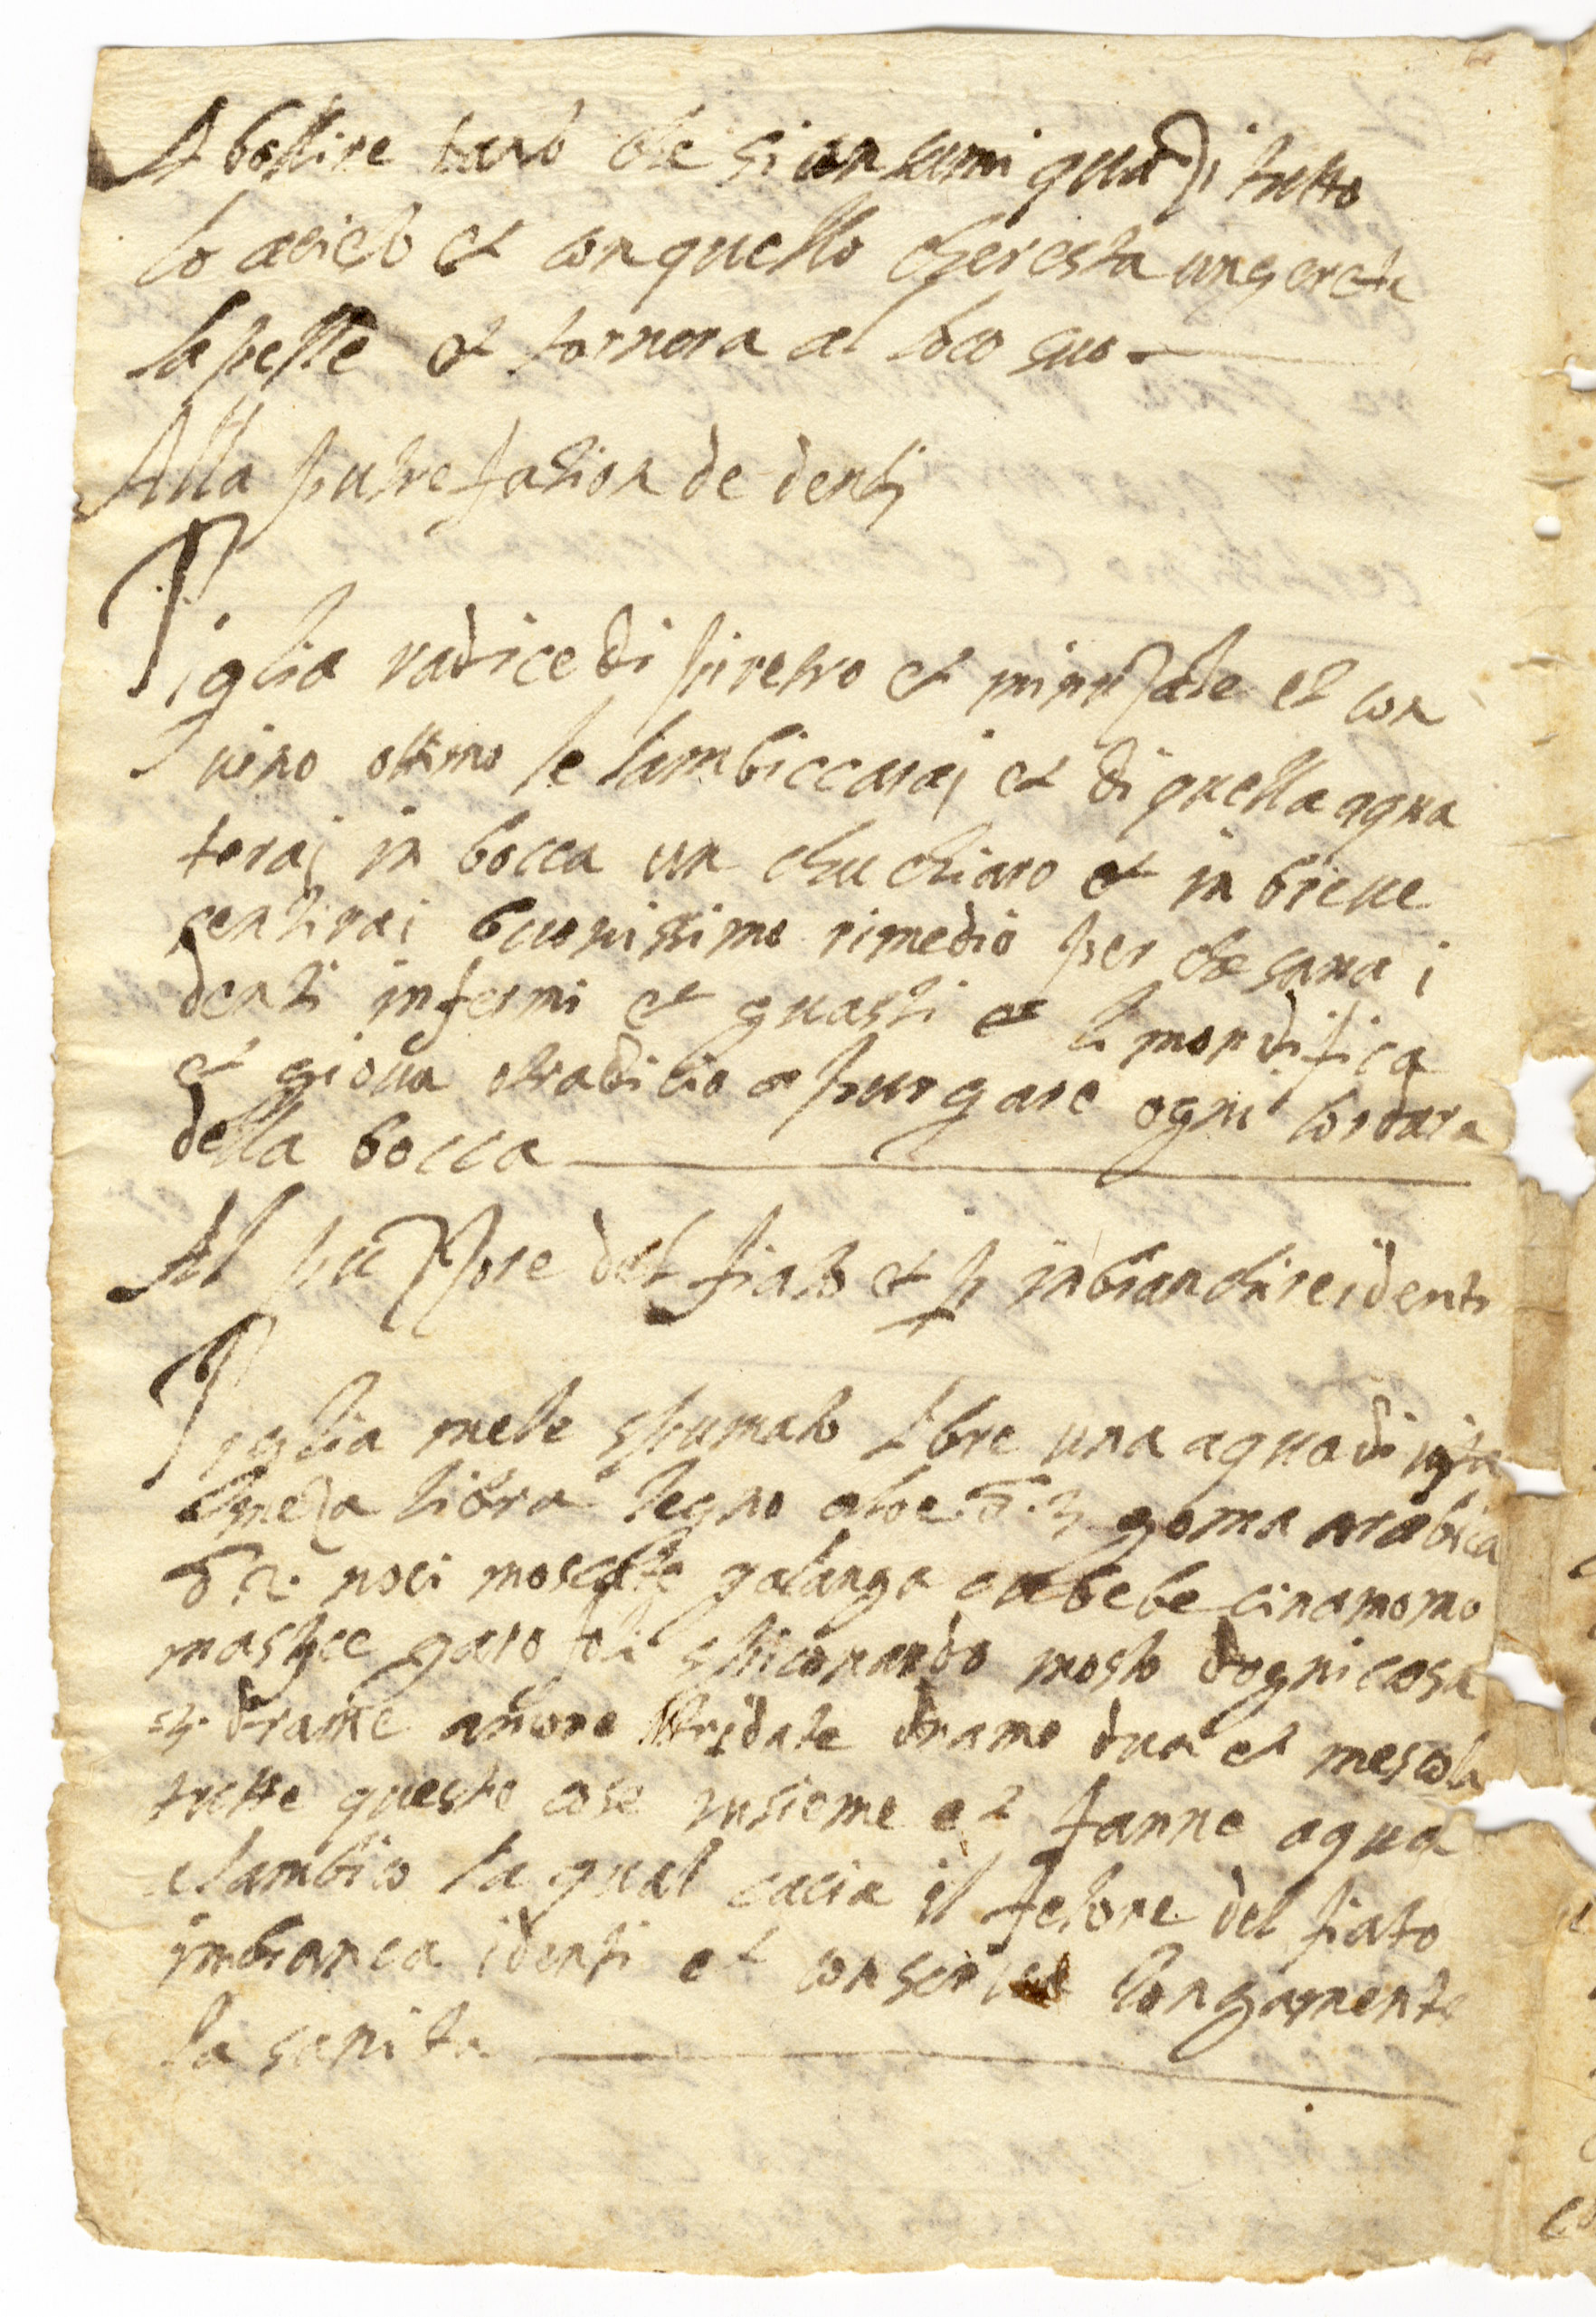 A bollire tanto che si consumi quasi tutto
lo acieto et con quello che resta ungerete
la pelle et tornera al loco suo
Alla putrefation de denti
Piglia radice di piretro et minuzate et con
vino ottimo le lambiccarai et di quella aqua
terai in bocca un chuchiaro et in breue
sentirai buonissimo rimedio per che sana i
denti infermi et guasti et li mondifica
et gioua oltra di cio a purgare ogni lordura
della bocca
Al puzzore del fiato et p inbianchire i denti
Piglia melle spumato libre una aqua di uita
meza libra legno aloe goma arabica
noci moscate galanga cubebe cinamomo
mastice garofoli spiconardo mosto dogni cosa
drame ancora drame dua et mescola
tutte queste cose insieme et fanne aqua
a lambico la qual cacia il fetore del fiato
imbianca i denti et longamente
la sanita